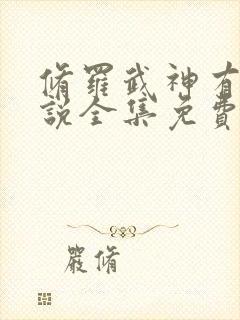 脩羅武神有
說全集免費
嚴脩